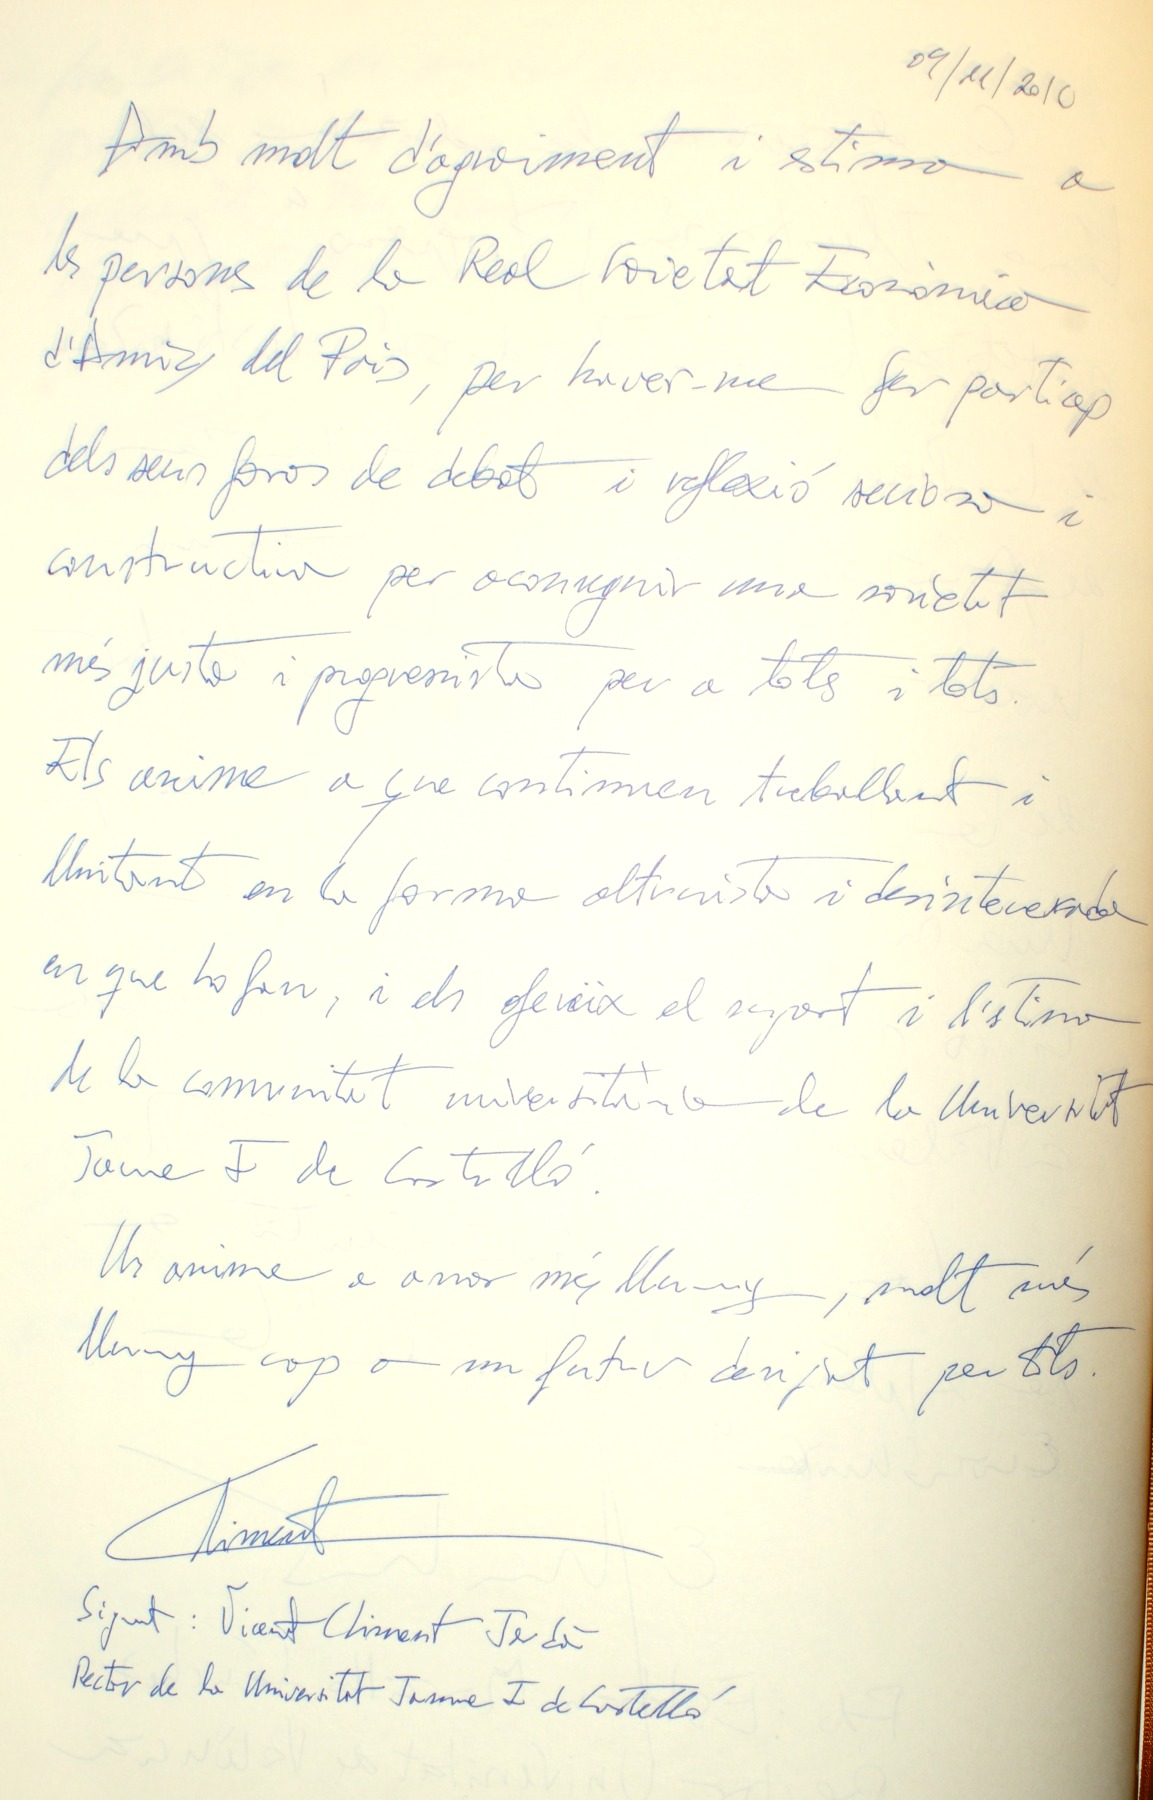 09/11/2010
Amb molt d'agraïment i estima a
les persones de la Real Societat Econòmica
d'Amics del País, per haver-me fer particep
dels seus foros de debat i reflexió seriosa i
constructiva per aconseguir una societat
més justa i progressista per a totes i tots.
Els anime a que continuen treballant i
lluitant en la forma altruista i desinteressada
en que ho fan, i els ofereix el suport i l'estima
de la comunitat universitària de la Universitat
Jaume I de Castelló.
Us anime a anar més lluny, molt més
lluny cap a un futur desitjat per tots.
Climent
Signat: Vicent Climent Jordà
Rector de la Universitat Jaume I de Castelló